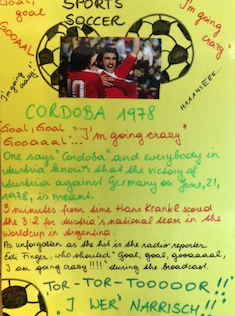 SPORTS
SOCCER
Goal,
goal
GOOAAL
I'm going
crazy"
I'm going
crazy"
NAAANIEER
CORDOBA 1978
"Goal, Goal
Gooaaal"... "I'm going crazy"
One says "Cordoba" and everybody in
Austria knows that the victory of
Austria against Germany on June, 21,
1978, is meant.
3 minutes from time Hans Krankl scored
the 3:2 for Austria's national team in the
Worldcup in Argentina.
As unforgotten as the hit is the radio reporter
Edi Finger, who shouted "Goal, goal, goooaaaal,
I am going crazy!!!!" during the broadcast.
TOR-TOR-TOOOOOR!!
"I WER' NARRISCH"!!